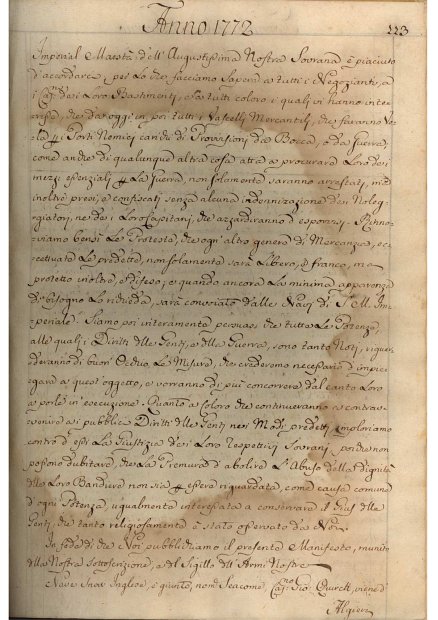 Anno 1772
223
Imperial Maestà dell' Augustissima Nostra Sovrana è piaciuto
d'accordarci, per Lo che facciamo Sapere a tutti i Negozianti, a
i Capni de i Loro Bastimenti, e a tutti coloro i quali vi hanno inte-
resse, che da oggi in poi tutti i Vascelli Mercantili, che faranno Ve-
la Porti Nemici carichi di Provvisioni da Bocca, e da Guerra,
come anche di qualunque altra cosa atta a procurar Loro de i
mezzi essenziali La Guerra, non solamente saranno arrestati, mà
inoltre presi, e confiscati senza alcuna indennizazione de i Noleg-
giatori, ne de i Loro Capitani, che azzarderanno d'esporvisi. Rinno-
viamo bensì Le Proteste, che ogni altro genere di Mercanzia, ec-
cettuate Le predette, non solamente sarà Libera, e franca, ma
protetta inoltre, e difesa; e quando ancora La minima apparenza
di bisogno Lo richieda, sarà convoiata dalle Navi di S. M. Im-
periale. Siamo poi interamente persuasi che tutte Le Potenze,
alle quali i Diritti delle Genti, e della Guerra, sono tanto Noti, riguar-
deranno di buon' Occhio Le Misure, che crederemo necessario d'impie-
gare a quest' oggetto, e vorranno di più concorrere dal canto Loro
a porle in esecuzione. Quanto a coloro che continueranno a contrav-
venire a i pubblici Diritti delle Genti nei Modi predetti, imploriamo
contro d'essi La Giustizia de i Loro respettivi Sovrani, poiche non
possono dubitare, che La Premura d'abolire L'Abuso della Dignità
della Loro Bandiera non sia essere riguardata, come causa comune
d'ogni Potenza, ugualmente interessata a conservare il Gius delle
Genti, che tanto religiosamente è stato osservato da Noi.
In fede di che Noi pubblichiamo il presente Manifesto, munito
della Nostra Sottoscrizione, e del Sigillo dell' Armi Nostre
Nave Inglese, è giunto, nome Capno Gio: viene d'
Algieri